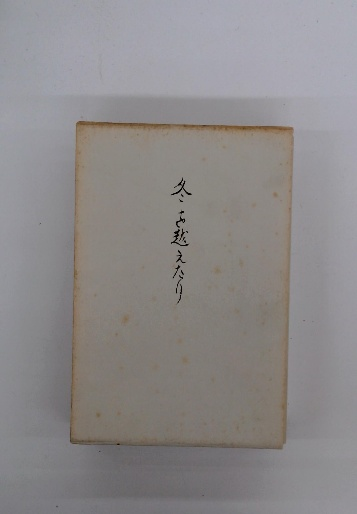 冬を越えたり